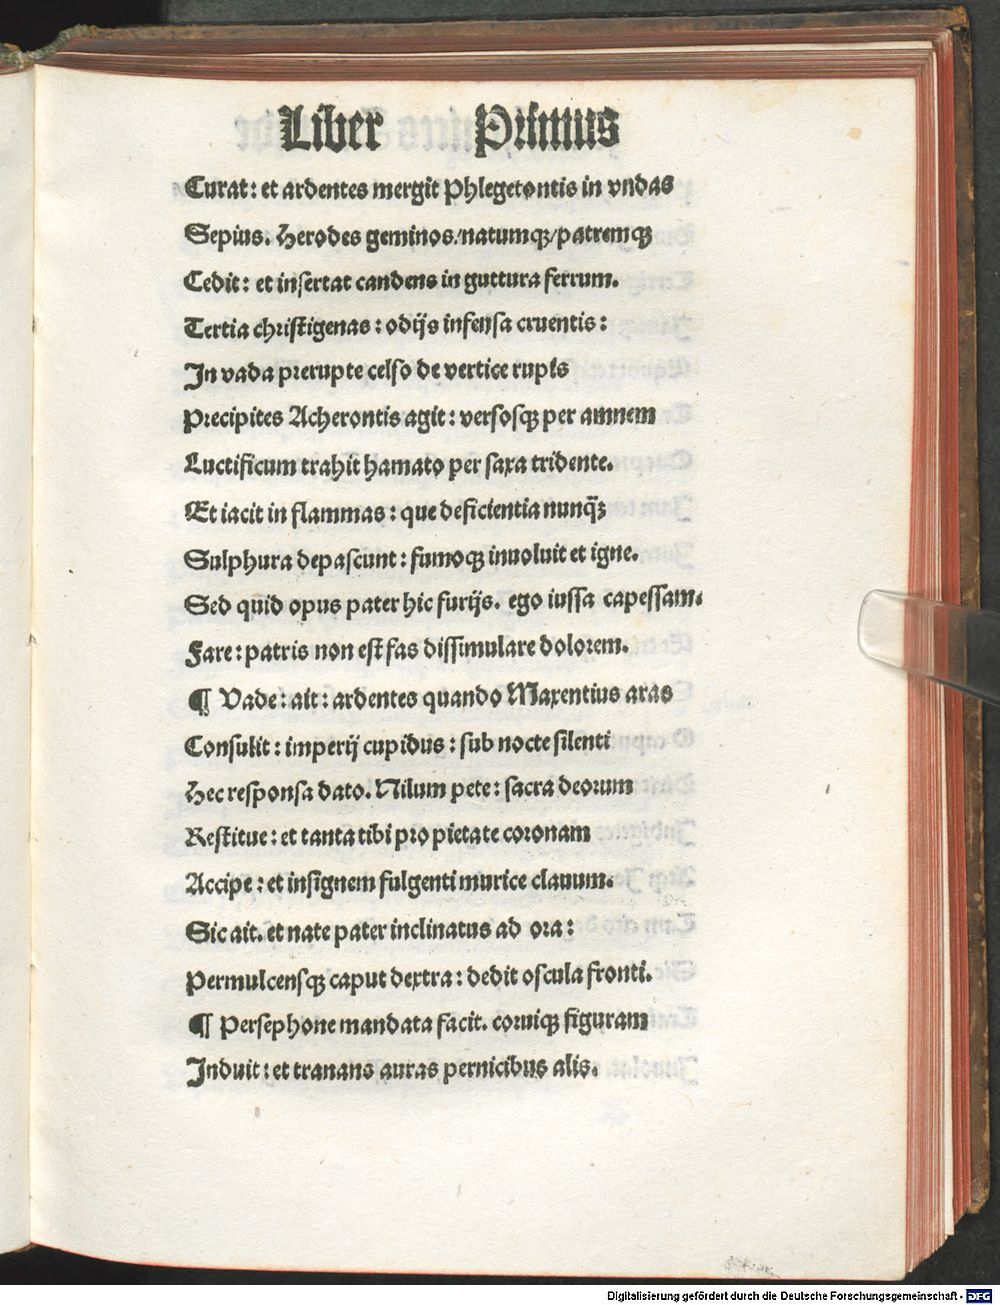 Liber Primus
Curat: et ardentes mergit Phlegetontis in vndas
Sepius. Herodes geminos/natumqꝫ/patremqꝫ
Cedit: et insertat candens in guttura ferrum.
Tertia christigenas: odijs infensa cruentis:
In vada prerupte celso de vertice rupis
Precipites Acherontis agit: versosqꝫ per amnem
Luctificum trahit hamato per saxa tridente.
Et iacit in flammas: que deficientia nunqꝫ̃
Sulphura depascunt: fumoqꝫ inuoluit et igne.
Sed quid opus pater hic furijs. ego iussa capessam.
Fare: patris non est fas dissimulare dolorem.
¶ Vade: ait: ardentes quando Maxentius aras
Consulit: imperij cupidus: sub nocte silenti
Hec responsa dato. Nilum pete: sacra deorum
Restitue: et tanta tibi pro pietate coronam
Accipe: et insignem fulgenti murice clauum.
Sic ait. et nate pater inclinatus ad ora:
Permulcensqꝫ caput dextra: dedit oscula fronti.
¶ Persephone mandata facit. coruiqꝫ figuram
Induit: et tranans auras pernicibus alis.
Digitalisierung gefördert durch die Deutsche Forschungsgemeinschaft - DFG